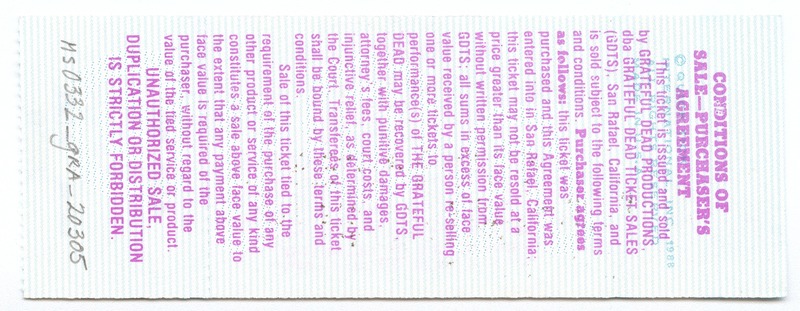 CONDITIONS OF
SALE—PURCHASER'S
AGREEMENT
This ticket is issued and sold
by GRATEFUL DEAD PRODUCTIONS,
dba GRATEFUL DEAD TICKET SALES
(GDTS), San Rafael, California, and
is sold subject to the following terms
and conditions. Purchaser agrees
as follows: this ticket was
purchased and this Agreement was
entered into in San Rafael, California;
this ticket may not be resold at a
price greater than its face value
without written permission from
GDTS; all sums in excess of face
value received by a person re-selling
one or more tickets to
performance(s) of THE GRATEFUL
DEAD may be recovered by GDTS,
together with punitive damages,
attorney's fees, court costs, and
injunctive relief, as determined by
the Court. Transferees of this ticket
shall be bound by these terms and
conditions.
Sale of this ticket tied to the
requirement of the purchase of any
other product or service of any kind
constitutes a sale above face value to
the extent that any payment above
face value is required of the
purchaser, without regard to the
value of the tied service or product.
UNAUTHORIZED SALE,
DUPLICATION OR DISTRIBUTION
IS STRICTLY FORBIDDEN.
MS0332_gRA_20305
1988